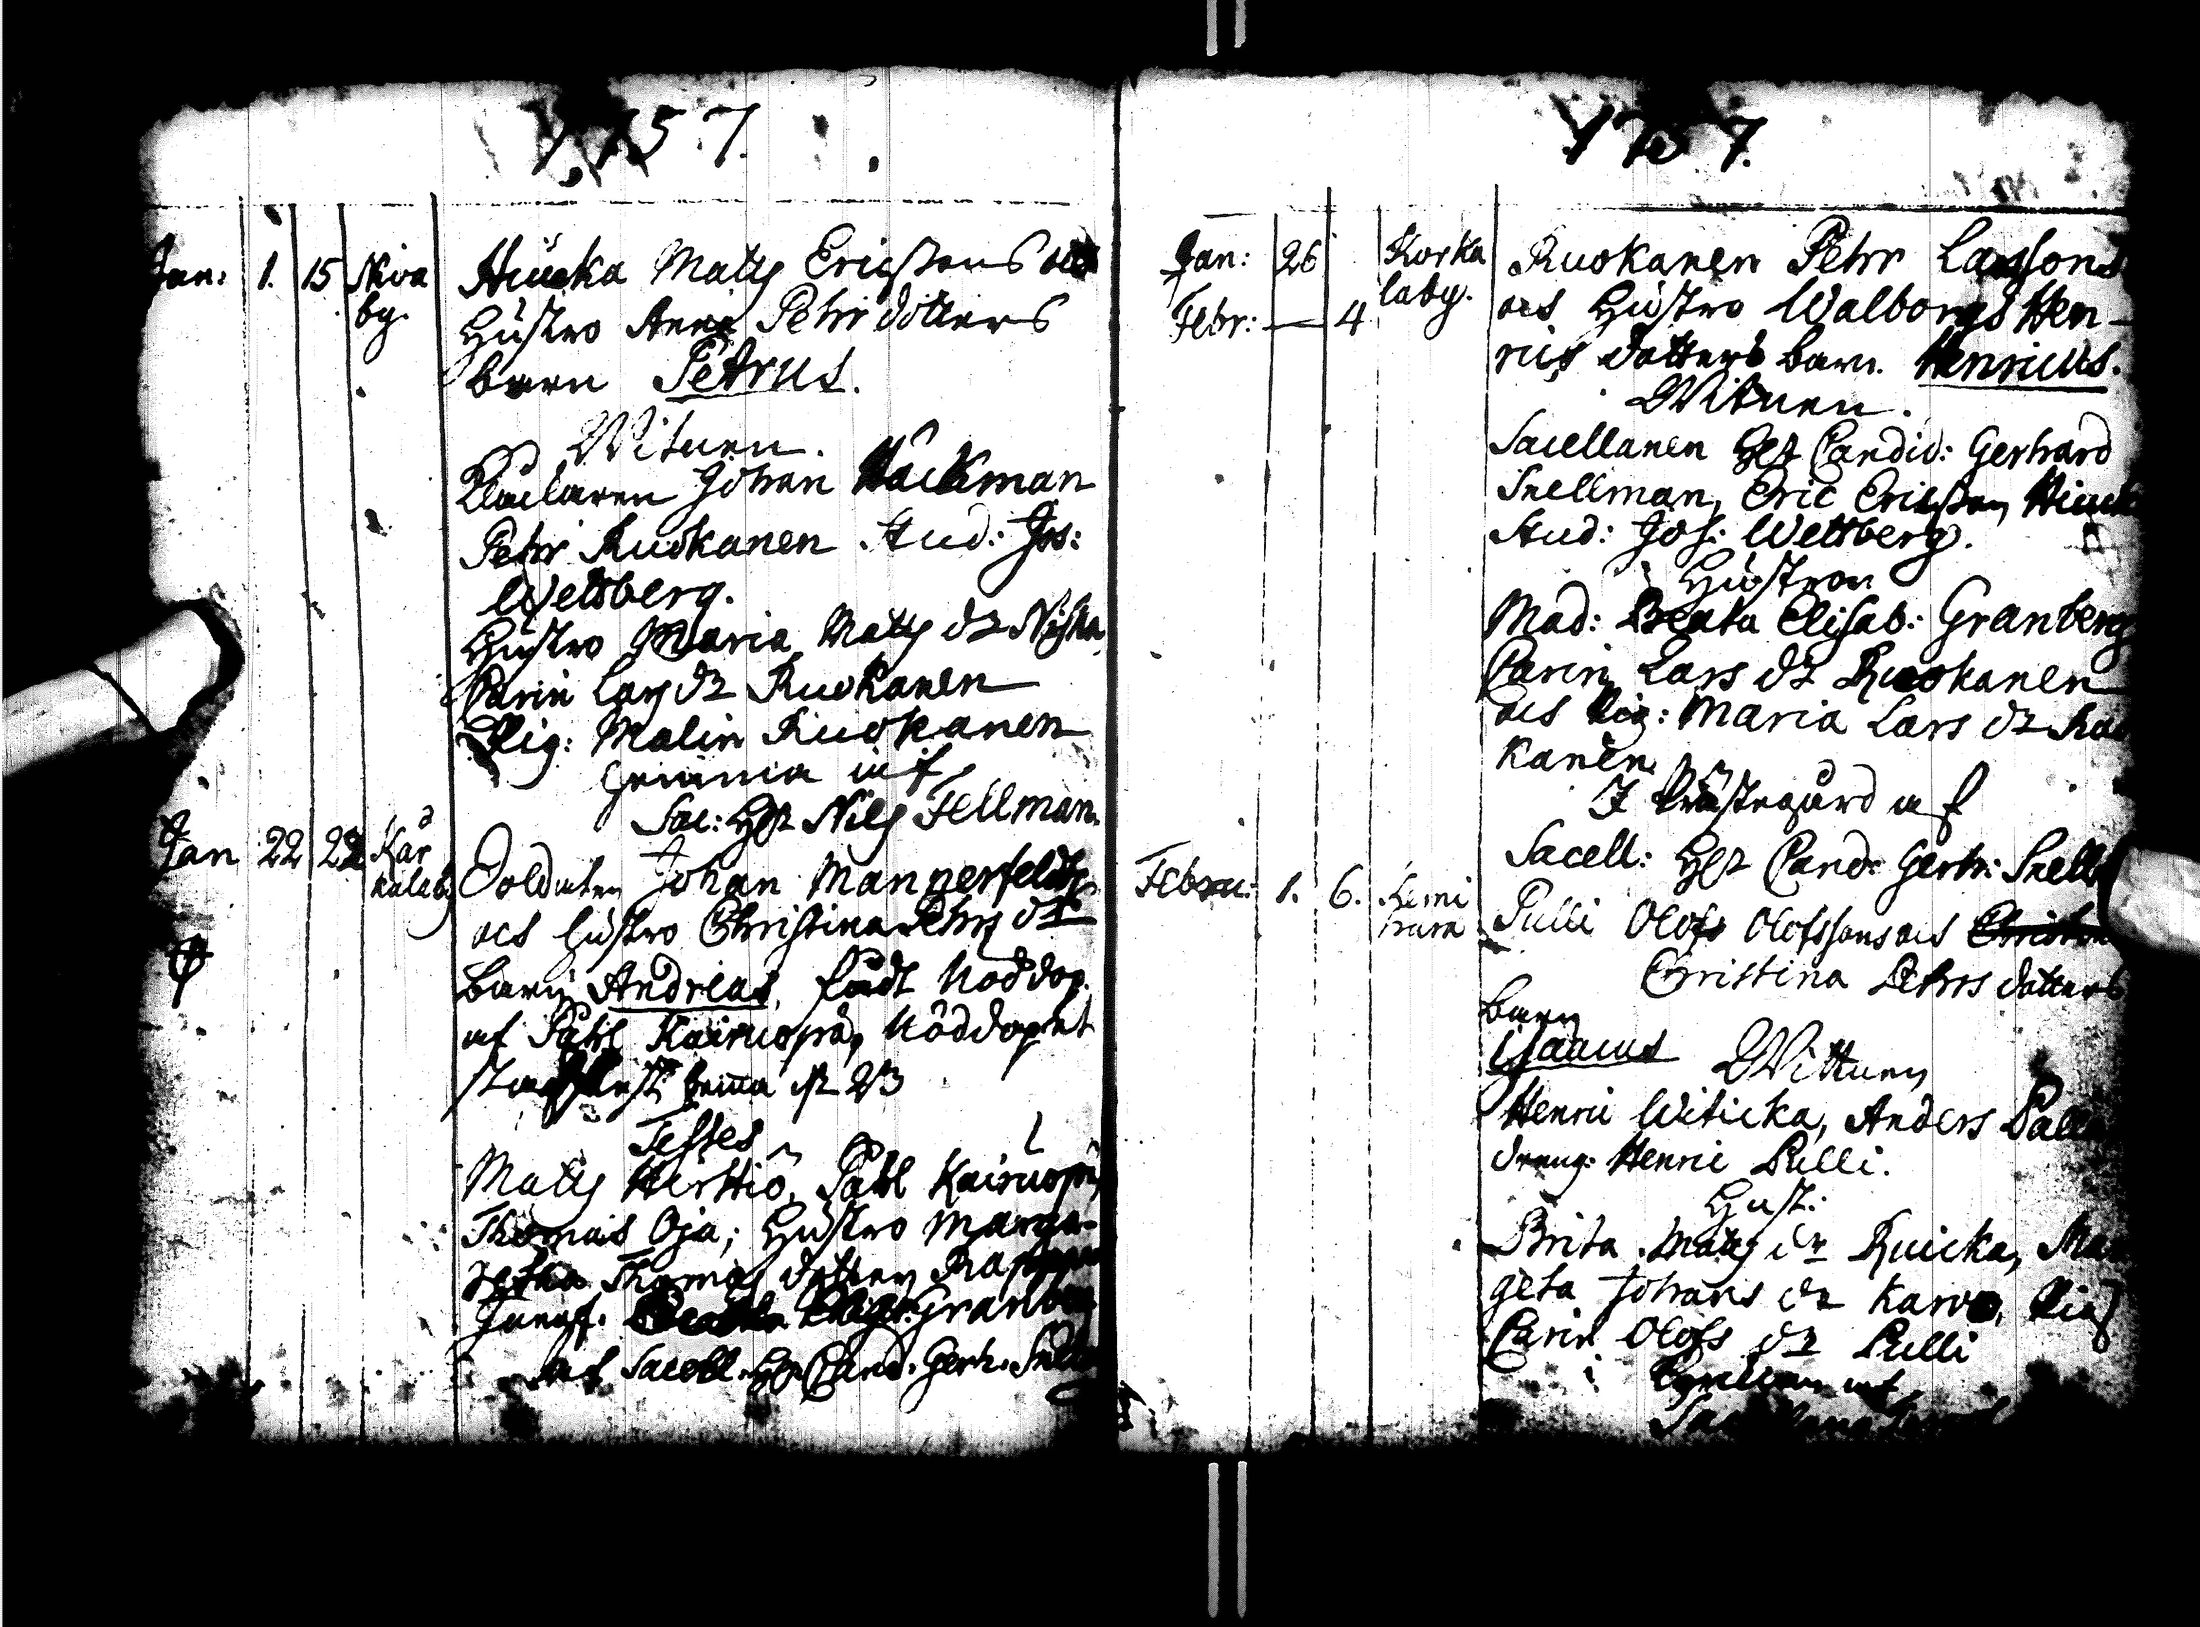 1757.
Jan: 1. 15 Niva
by.
Hiucka Matts Ericssons och
Hustro Anna Pehrs dotters
barn Petrus.
Witnen.
Klockaren Johan Häckman
Pehr Ruokanen Stud: Jos:
Wettberg.
Hustro Maria Matts dr Niska
Carin Lars dr Ruokanen
Pig: Malin Ruokanen
hemma af
Sac: Hr Nils Fellman.
Jan 22 22 Kär
kälaby
Soldaten Johan Mannerfeldts
och hustro Christina Pehrs dr
barn Andreas, födt Nöddop.
af Påhl Kairuoja, Nöddopet
hemma
Testes
Matts Hirttiö, Påhl Kairuoja
Thomas Oja; Hustro Marga-
retha Thomas dotter
Jungf. Granberg
af Sacell. Hr Cand. Gerh. Snell
1757.
Jan: 26 Korka
Febr: — 4 laby.
Ruokanen Pehr Larssons
och Hustro Walborgs Hen-
rics dotters barn. Henricus.
Witnen.
Sacellanen Hr Candid: Gerhard
Snellman, Eric Ericsson Hiuck
Stud: Jos: Wettberg.
Hustron
Mad: Beata Elisab: Granberg
Carin Lars dr Ruokanen
och Pig: Maria Lars dr Ruo
kanen
I Prästegård af
Sacell: Hr Cand: Gerh: Snellm
Febru: 1. 6. Kemi
hara
Pulli Olofs Olofssons och Christin
Christina Pehrs dotters
barn
Isaacus Wittnen
Henric Witicka, Anders Palle
dreng: Henric Pulli.
Hust:
Brita Matts dr Kuicka, Mar
geta Johans dr Karvo, Pig
Carin Olofs dr Pulli
i af